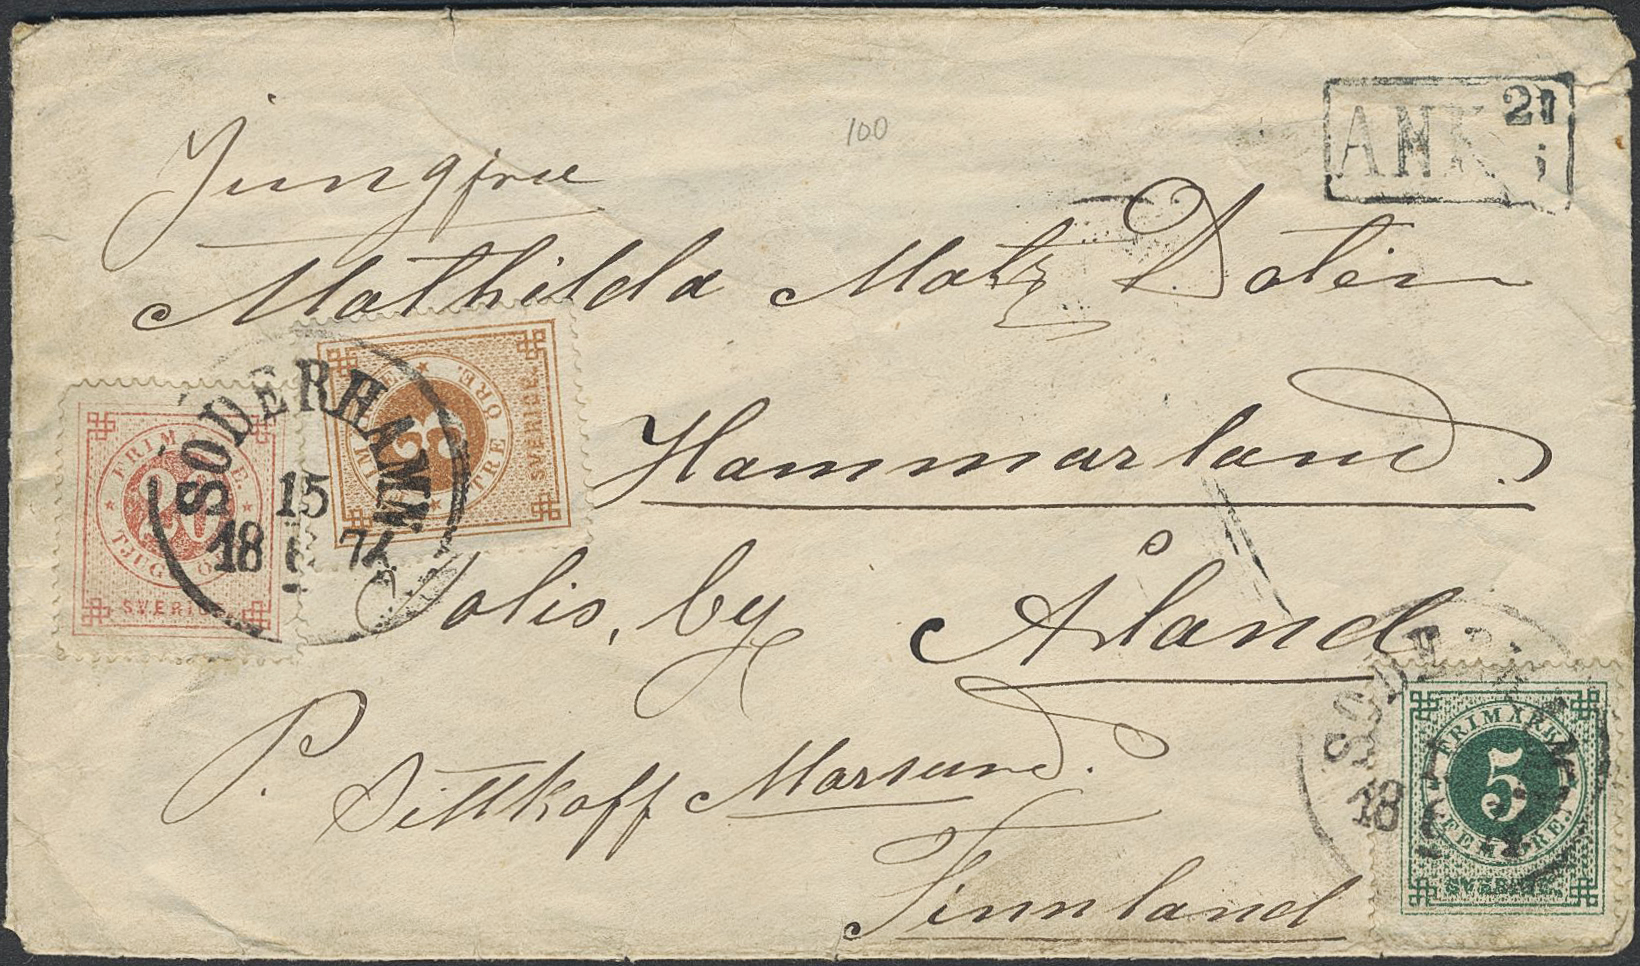 100
ANK 21
Jungfru
Mathilda Matz Doter
Hammarland.
Solis, by Åland
P. Sittkoff Marsund.
Finnland
SÖDERHAMN
15
18 6 74
FRIM E.
20
TJUGO Ö
SVERIGE
3
TRE ÖRE.
SVERIGE
SÖDER
18 6
FRIMÄRKE
5
FEM ÖRE.
SVERIGE